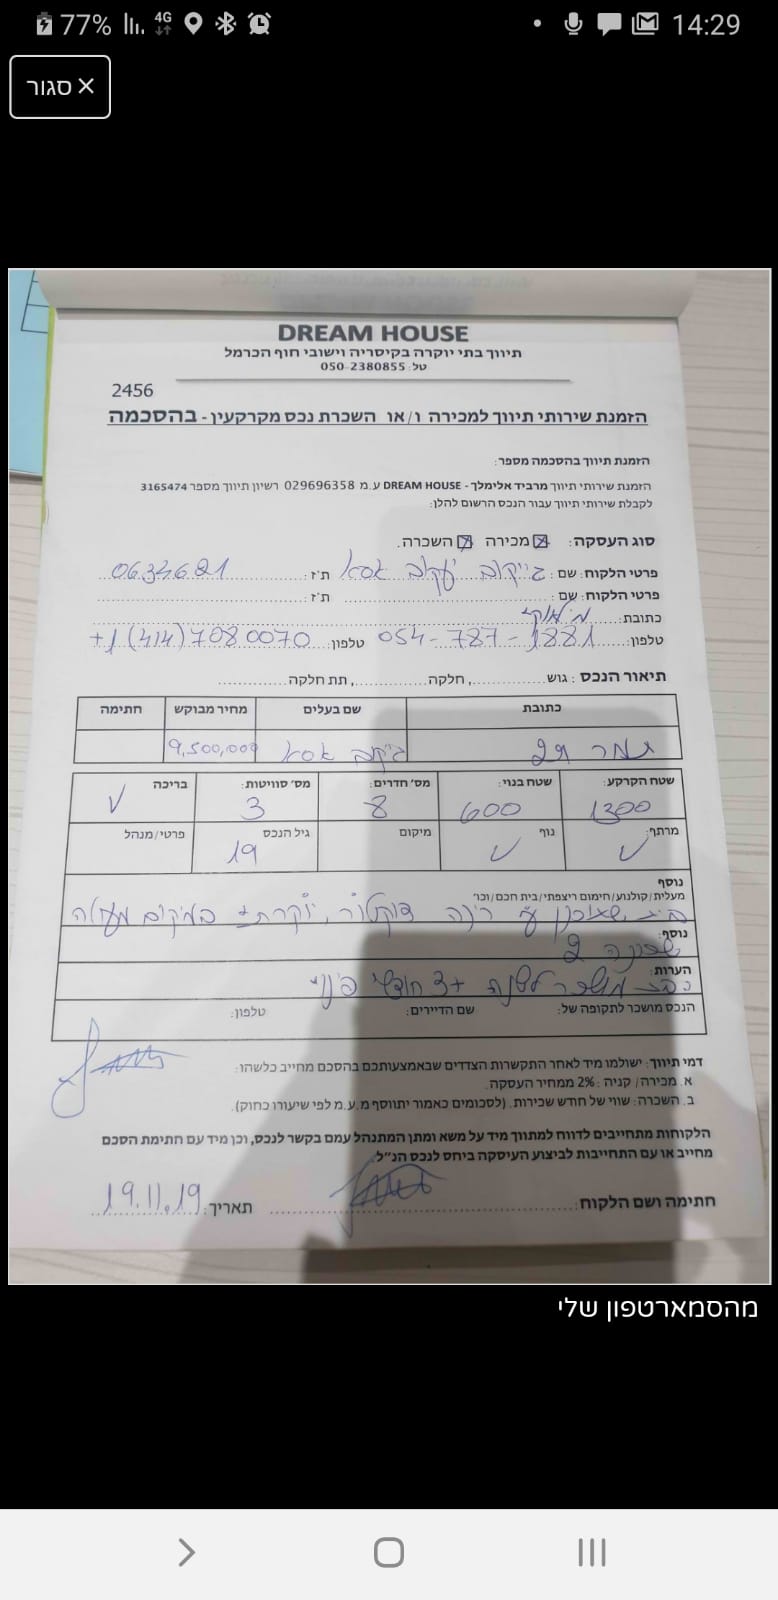 77% 4G 14:29
× סגור
DREAM HOUSE
תיווך בתי יוקרה בקיסריה וישובי חוף הכרמל
טל: 050-2380855
2456
הזמנת שירותי תיווך למכירה ו/או השכרת נכס מקרקעין - בהסכמה
הזמנת תיווך בהסכמה מספר:
הזמנת שירותי תיווך מרביד אלימלך - DREAM HOUSE ע.מ 029696358 רשיון תיווך מספר 3165474
לקבלת שירותי תיווך עבור הנכס הרשום להלן:
סוג העסקה: מכירה השכרה.
פרטי הלקוח: שם: ג'ייקוב יעקב אסא ת'ז: 0634621
פרטי הלקוח: שם: ת'ז:
כתובת:
טלפון: 054-787-1881 טלפון: +1(414)7080070
תיאור הנכס: גוש, חלקה, תת חלקה
כתובת שם בעלים מחיר מבוקש חתימה
תמר ג'ייקוב אסא 9,500,000
שטח הקרקע: שטח בנוי: מס' חדרים: מס' סוויטות: בריכה
1300 600 8 3 ✓
מרתף: נוף מיקום גיל הנכס פרטי/מנהל
✓ ✓ 19
נוסף
מעלית/קולנוע/חימום ריצפתי/בית חכם/וכו'
בית שתוכנן ע"י רינה דוקטור, יוקרתי במיקום מעולה
נוסף:
שכונה 2
הערות:
מושכר לשנה +3 חודשי פינוי
הנכס מושכר לתקופה של: שם הדיירים: טלפון:
דמי תיווך: ישולמו מיד לאחר התקשרות הצדדים שבאמצעותכם בהסכם מחייב כלשהו:
א. מכירה/ קניה: 2% ממחיר העסקה.
ב. השכרה: שווי של חודש שכירות. (לסכומים כאמור יתווסף מ.ע.מ לפי שיעורו כחוק).
הלקוחות מתחייבים לדווח למתווך מיד על משא ומתן המתנהל עמם בקשר לנכס, וכן מיד עם חתימת הסכם
מחייב או עם התחייבות לביצוע העיסקה ביחס לנכס הנ"ל.
חתימה ושם הלקוח: תאריך: 19.11.19
מהסמארטפון שלי